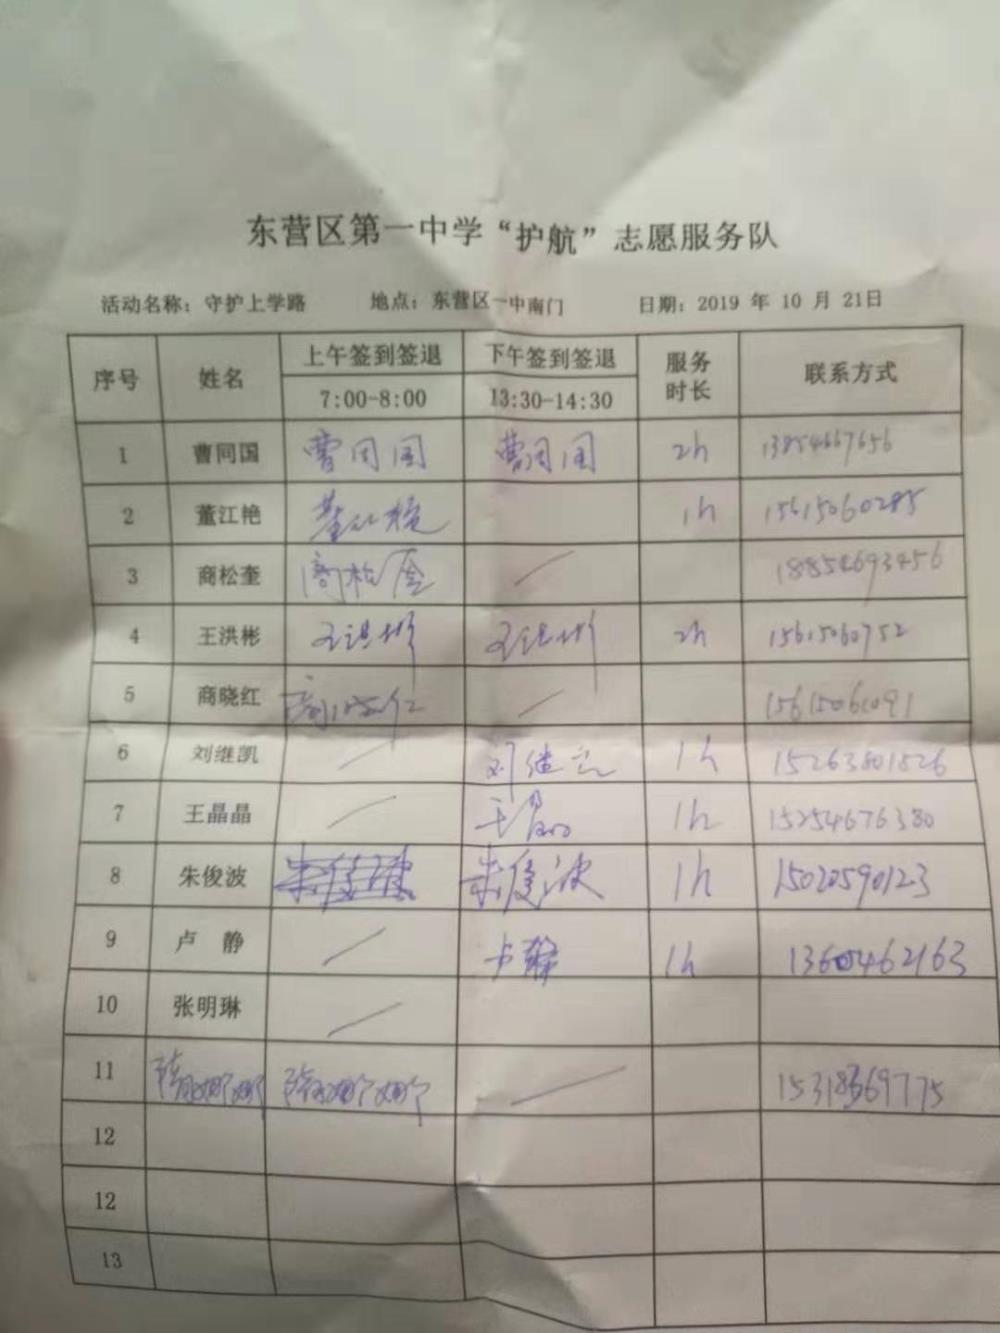 东营区第一中学“护航”志愿服务队
活动名称：守护上学路 地点：东营区一中南门 日期：2019 年 10 月 21日
序号 姓名 上午签到签退 下午签到签退 服务时长 联系方式
7:00-8:00 13:30-14:30
1 曹同国 曹同国 曹同国 2h 13854667656
2 董江艳 董江艳 1h 15615060285
3 商松奎 商松奎 — 18854693456
4 王洪彬 王洪彬 王洪彬 2h 15615060752
5 商晓红 商晓红 — 15615061091
6 刘继凯 — 刘继凯 1h 15263801826
7 王晶晶 — 王晶晶 1h 15254676380
8 朱俊波 朱俊波 朱俊波 1h 15020590123
9 卢 静 — 卢静 1h
10 张明琳 —
11 —
12
12
13